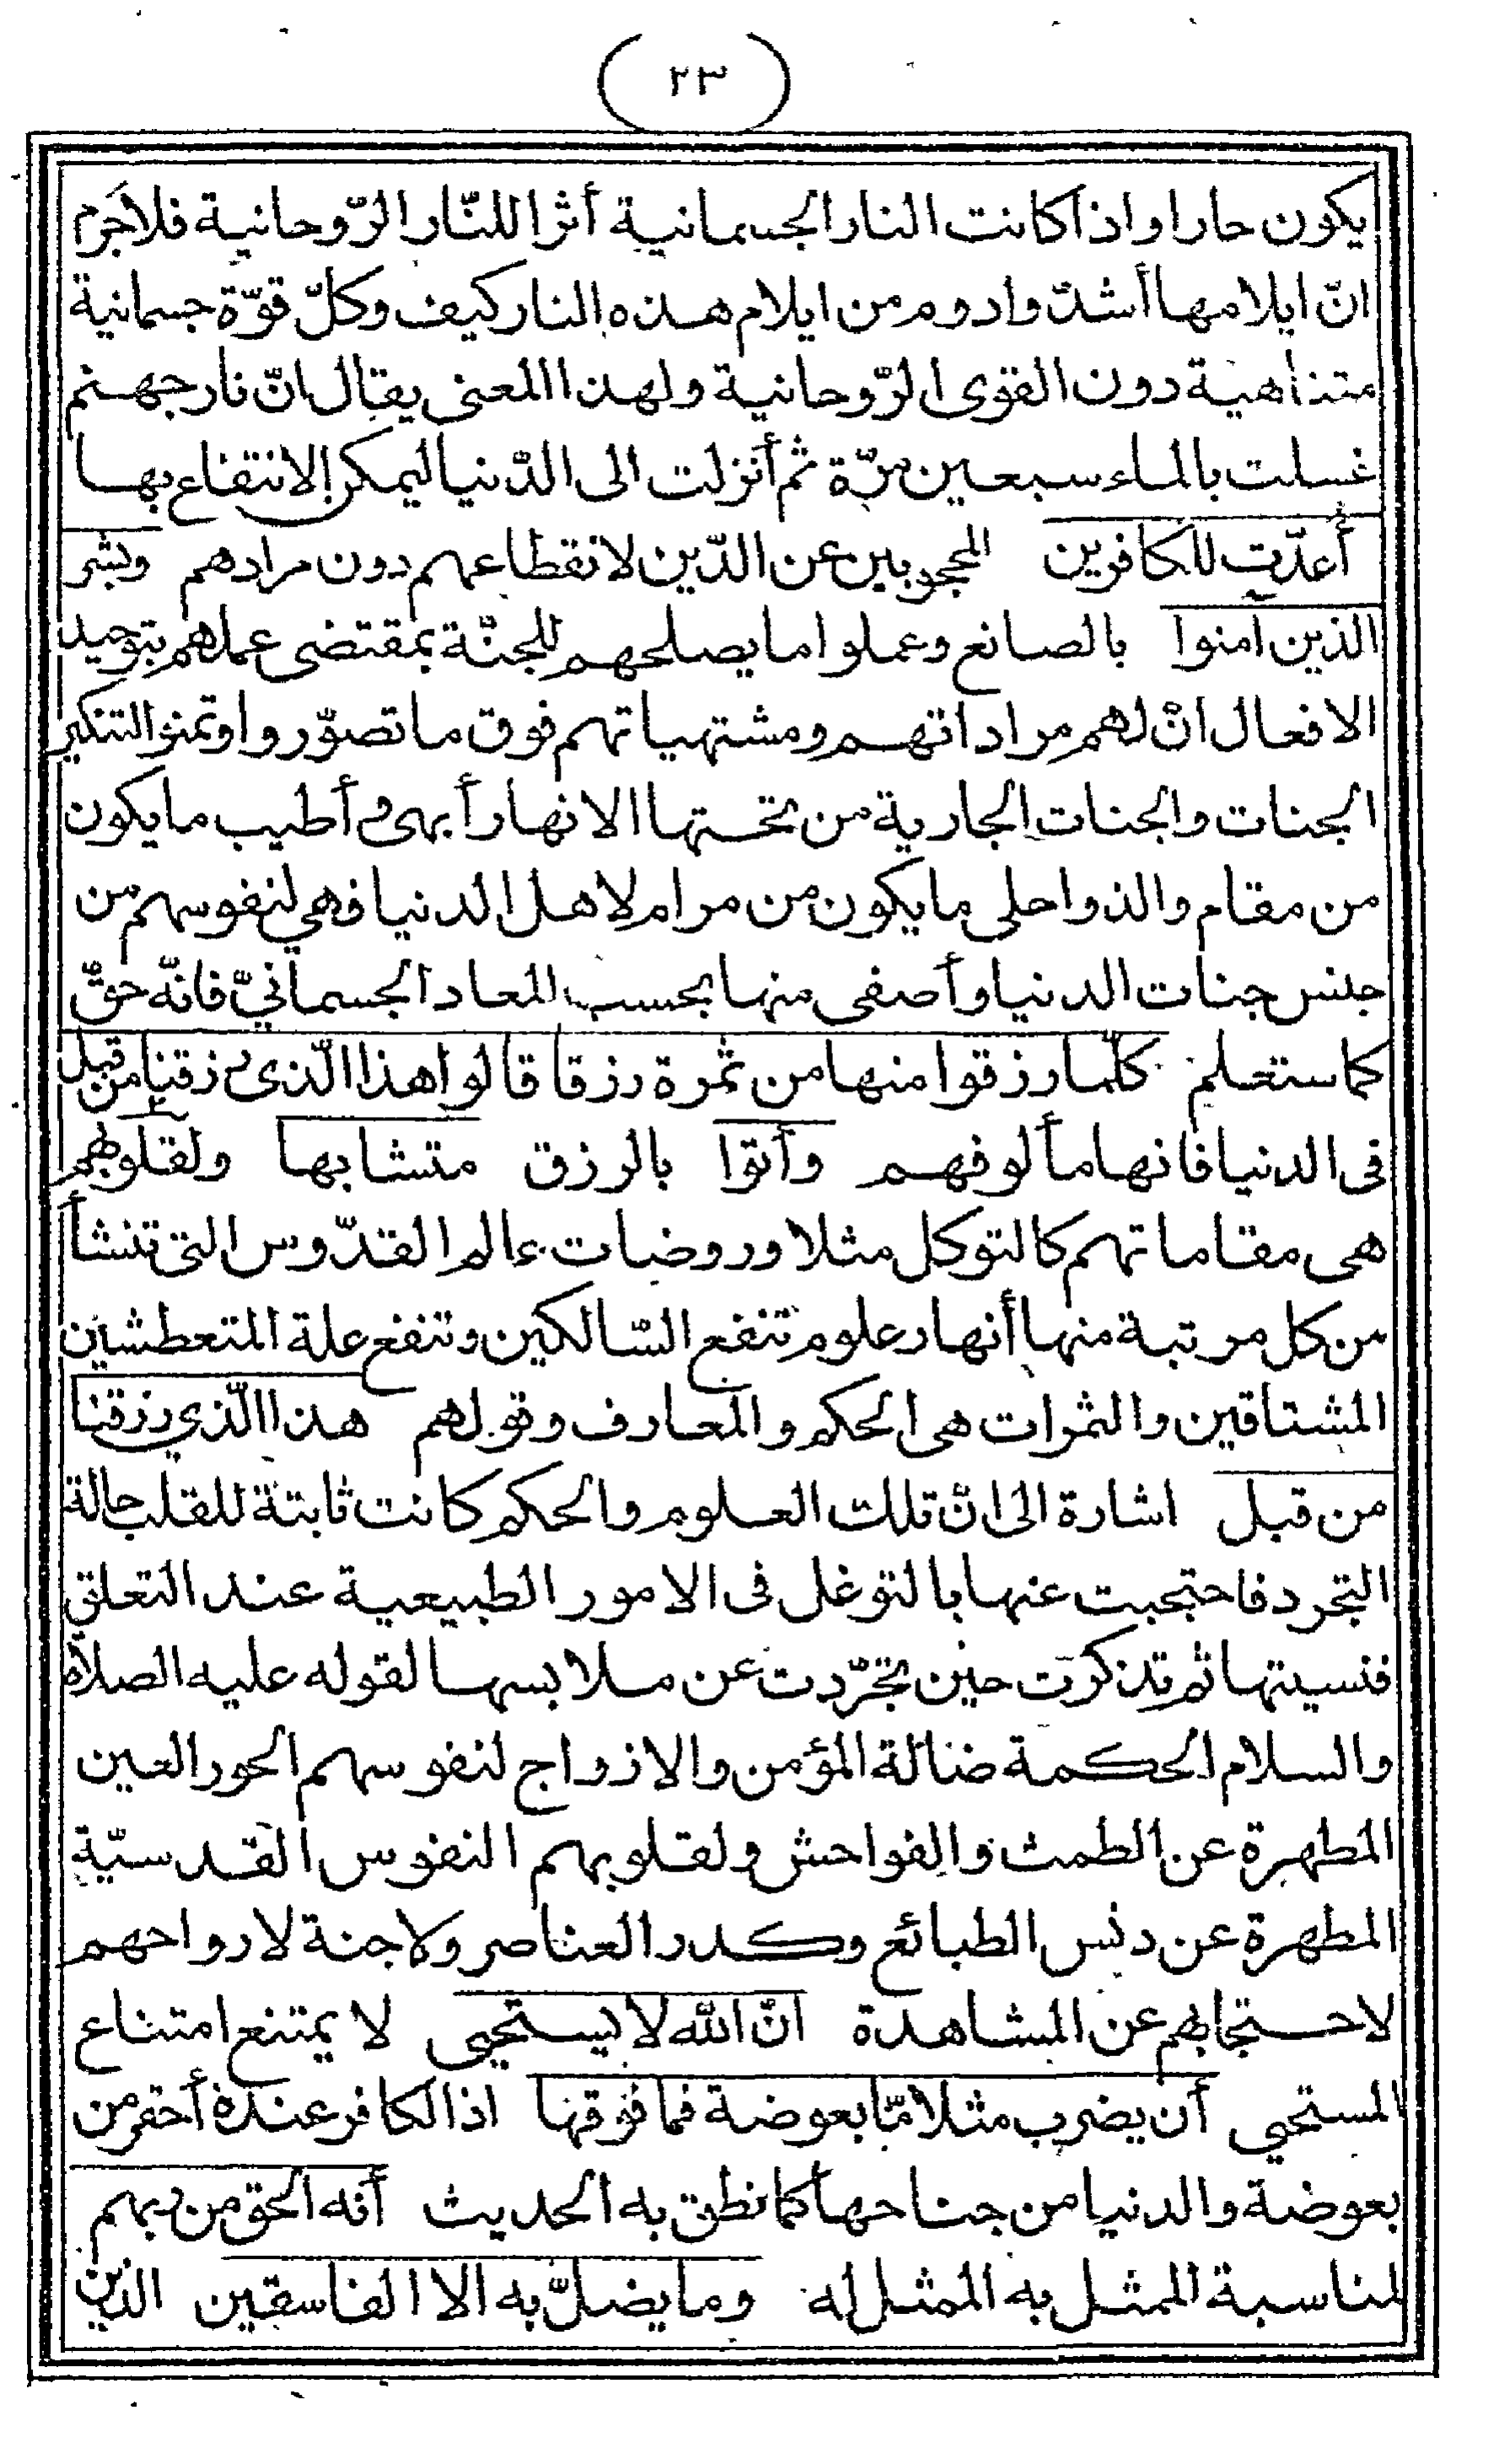 (٢٣)
يكون حارا واذا كانت النار الجسمانية أثرا للنّار الرّوحانية فلاجرم
انّ ايلامها أشدّ وادوم من ايلام هذه النار كيف وكلّ قوّة جسمانية
متناهية دون القوى الرّوحانية ولهذا المعنى يقال انّ نار جهنم
غسلت بالماء سبعين مرّة ثم أنزلت الى الدّنيا ليمكن الانتفاع بها
أعدّت للكافرين المحجوبين عن الدّين لانقطاعهم دون مرادهم وبشر
الذين آمنوا بالصانع وعملوا ما يصلحهم للجنّة بمقتضى عملهم بتوحيد
الافعال انّ لهم مراداتهم ومشتهياتهم فوق ما تصوّروا وتمنوا التنكير
الجنات والجنات الجارية من تحتها الانهار أبهى وأطيب ما يكون
من مقام والذ واحلى ما يكون من مرام لاهل الدنيا فهى لنفوسهم من
جنس جنات الدنيا وأصفى منها بحسب المعاد الجسمانيّ فانّه حقّ
كما ستعلم كلّما رزقوا منها من ثمرة رزقا قالوا هذا الّذى رزقنا من قبل
فى الدنيا فانها مألوفهم وأتوا بالرزق متشابها ولقلوبهم
هى مقاماتهم كالتوكل مثلا وروضات عالم القدّوس التى تنشأ
من كل مرتبة منها أنهار علوم تنفع السّالكين وتنفع علة المتعطشين
المشتاقين والثمرات هى الحكم والمعارف وقولهم هذا الّذي رزقنا
من قبل اشارة الى انّ تلك العلوم والحكم كانت ثابتة للقلب حالة
التجرد فاحتجبت عنها بالتوغل فى الامور الطبيعية عند التعلق
فنسيتها ثم تذكرت حين تجرّدت عن ملابسها لقوله عليه الصلاة
والسلام الحكمة ضالة المؤمن والازواج لنفوسهم الحور العين
المطهرة عن الطمث والفواحش ولقلوبهم النفوس القدسيّة
المطهرة عن دنس الطبائع وكدر العناصر ولاجنة لارواحهم
لاحتجابهم عن المشاهدة انّ الله لا يستحيى لا يمتنع امتناع
المستحيي أن يضرب مثلا مّا بعوضة فما فوقها اذ الكافر عنده أحقر من
بعوضة والدنيا من جناحها كما نطق به الحديث أنه الحق من ربهم
لمناسبة الممثل به الممثل له وما يضلّ به الا الفاسقين الذين